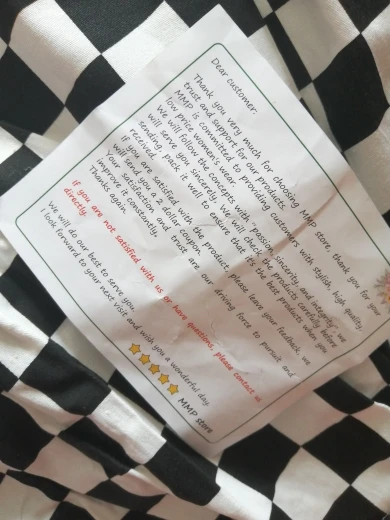 Dear customer:
Thank you very much for choosing MMP store, thank you for your
trust and support for our products.
MMP is committed to providing customers with stylish, high quality,
low price women's wear.
We will follow the concepts with "passion, sincerity, and integrity", we
will serve you sincerely. We will check the products carefully before
sending, pack it well to ensure that it's the best products when you
received.
If you are satisfied with the product, please leave your feedback, we
will send you a 2 dollar coupon.
Your satisfaction and trust are our driving force to pursuit and
improve it constantly.
Thanks again.
If you are not satisfied with us or have questions, please contact us
directly.
We will do our best to serve you.
I look forward to your next visit and wish you a wonderful day.
MMP store